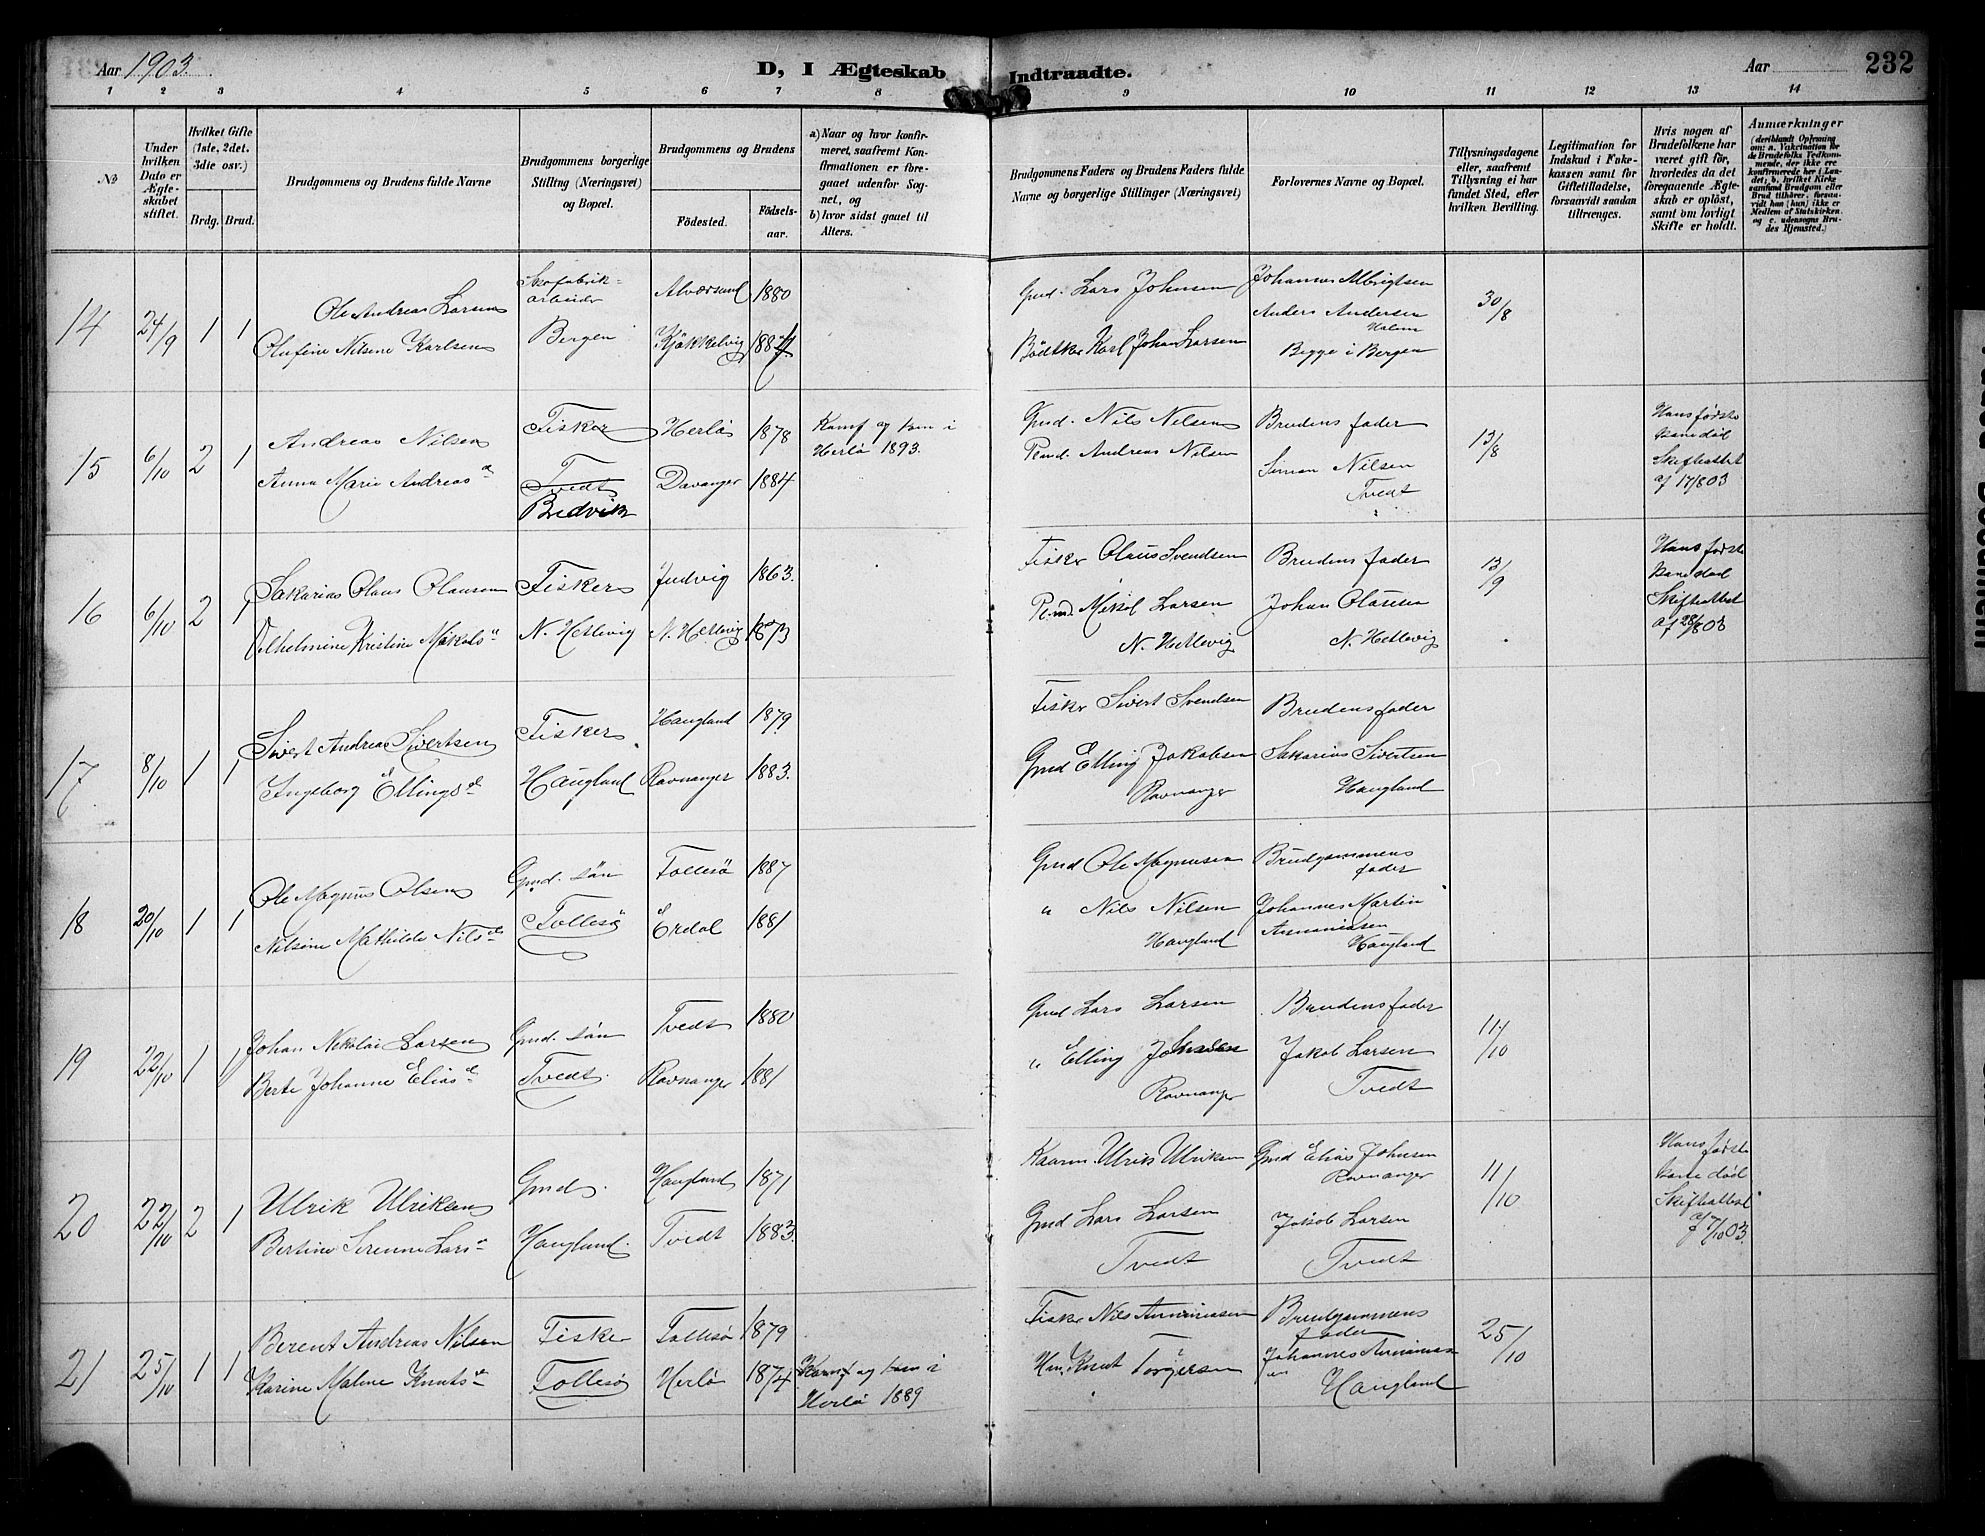 Aar 1903.
D, I Ægteskab Indtraadte.
Aar
232
1 2 3 4 5 6 7 8 9 10 11 12 13 14
No
Under hvilken Dato er Ægteskabet stiftet.
Hvilket Gifte (1ste, 2det, 3die osv.)
Brdg. Brud.
Brudgommens og Brudens fulde Navne
Brudgommens borgerlige Stilling (Næringsvei) og Bopæl.
Brudgommens og Brudens
Fødested.
Fødsels-aar.
a) Naar og hvor konfirmeret, saafremt Konfirmationen er foregaaet udenfor Sognet, og
b) hvor sidst gaaet til Alters.
Brudgommens Faders og Brudens Faders fulde Navne og borgerlige Stillinger (Næringsvei)
Forlovernes Navne og Bopæl.
Tillysningsdagene eller, saafremt Tillysning ei har fundet Sted, efter hvilken Bevilling.
Legitimation for Indskud i Enkekassen samt for Giftetilladelse, forsaavidt saadan tiltrænges.
Hvis nogen af Brudefolkene har været gift før, hvorledes da det foregaaende Ægteskab er opløst, samt om lovligt Skifte er holdt.
Anmærkninger
14 24/9 1 1
Ole Andreas Larsen
Olufine Nilsine Karlsen
Skofabrik-
arbeider
Bergen
Alversund 1880
Kjøkkelvig 1884
Gmd. Lars Johnsen
Bødtker Karl Johan Larsen
Johannes Albrigtsen
Anders Andersen
Begge i Bergen
30/8
15 6/10 2 1
Andreas Nilsen
Anna Marie Andreasd
Fisker
Tvedt
Bredvik
Herlö 1878
Davanger 1884
Konf og kom i
Herlö 1893.
Gmd. Nils Nilsen
Pmd. Andreas Nilsen
Brudens fader
Simon Nilsen
Tvedt
13/8
Hans første
Kone död
Skifteattest
af 17/8 03
16 6/10 2 1
Sakarias Olaus Olausen
Vilhelmine Kristine Mikalsd
Fisker
N. Hetlevig
Judvig 1863.
N. Hetlevig 1873
Fisker Olaus Svendsen
Pmd. Mikal Larsen
N. Hetlevig
Brudens fader
Johan Olausen
N. Hetlevig
13/9
Hans første
Kone död
Skifteattest
af 28/8 03
17 8/10 1 1
Sivert Andreas Sivertsen
Ingeborg Ellingsd
Fisker
Haugland
Haugland 1879
Ravnanger 1883.
Fisker Sivert Svendsen
Gmd Elling Jakobsen
Ravnanger
Brudens fader
Sakarias Sivertsen
Haugland
18 20/10 1 1
Ole Magnus Olsen
Nilsine Mathilde Nilsd
Gmd. sön
Follesö
Follesö 1887
Erdal 1881
Gmd Ole Magnusen
" Nils Nilsen
Haugland
Brudgommens
fader
Johannes Martin
Annaniasen
Haugland
19 22/10 1 1
Johan Nikolai Larsen
Berte Johanne Eliasd
Gmd. sön
Tvedt.
Tvedt 1880
Ravnanger 1881
Gmd Lars Larsen
" Elling Johnsen
Ravnanger
Brudens fader
Jakob Larsen
Tvedt
11/10
20 22/10 2 1
Ulrik Ulriksen
Bertine Serenne Larsd
Gmd.
Haugland.
Haugland 1871
Tvedt 1883.
Kaarm. Ulrik Ulriksen
Gmd Lars Larsen
Tvedt
Gmd Elias Johnsen
Ravnanger
Jakob Larsen
Tvedt
11/10
Hans første
Kone död
Skifteattest
af 7/10 03.
21 25/10 1 1
Berent Andreas Nilsen
Karine Malene Knutsd
Fisker
Follesö
Follesö 1879
Herlö 1874
Konf og kom i
Herlö 1889
Fisker Nils Annaniasen
Hm. Knut Torgersen
Brudgommens
fader
Johannes Annanias-
sen
Haugland
25/10